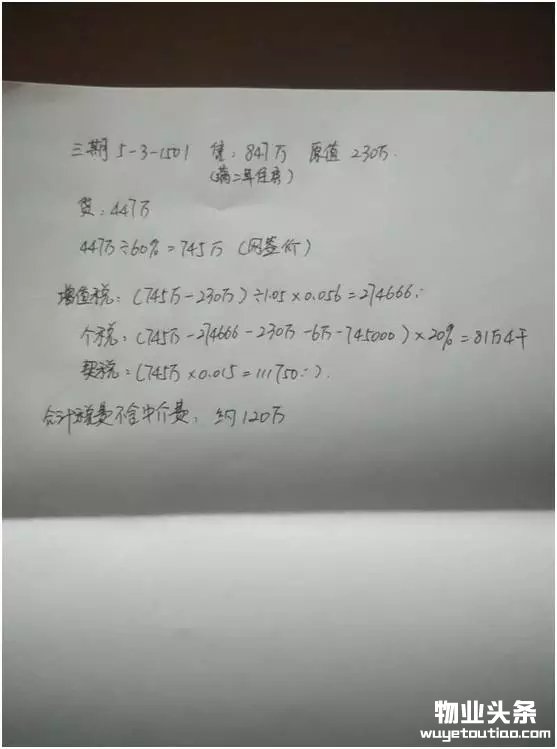 三期 5-3-1501 售:847万 原值 230万.
(满二年住房)
贷:447万
447万÷60%=745万 (网签价)
增值税:(745万-230万)÷1.05×0.056=274666:
个税:(745万-274666-230万-6万-745000)×20%=81万4千
契税:(745万×0.015=111750:).
合计税费不含中介费,约120万
物业头条
wuyetoutiao.com